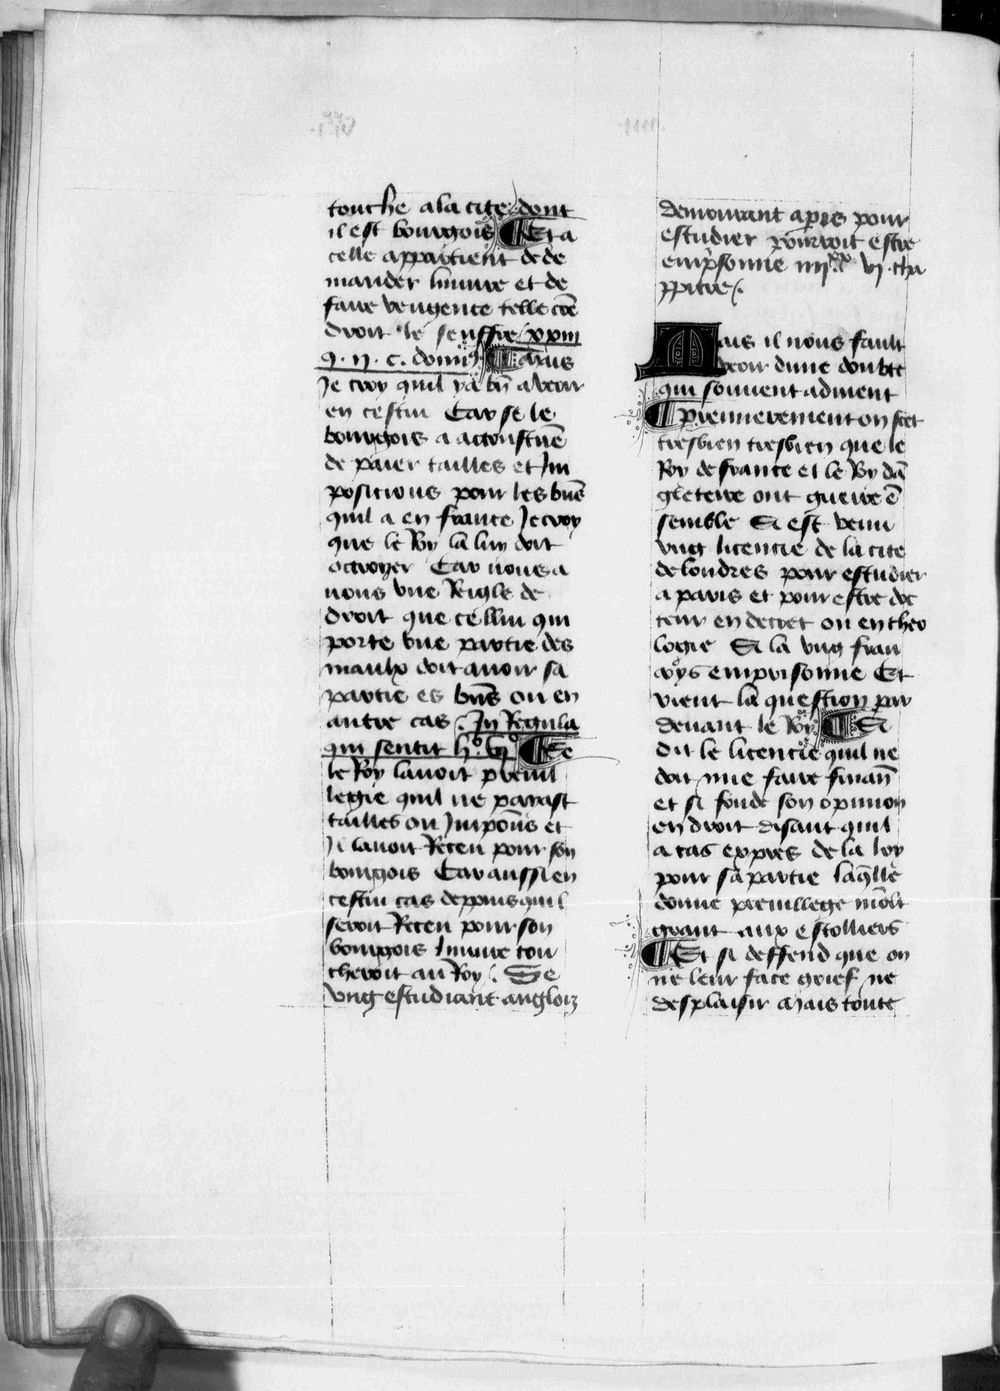 touche a la cite dont
il est bourgois ¶ Et a
celle appartient de de
mander liniure et de
faire vengence telle cōe
droit le seuffre xxiii
q. ii. c. domin9 ¶ Mais
Je croy quil ya bn̄ a veoir
en cestui Car se le
bourgois a acoustumē
de paier tailles et Im
posicions pour les biēs
quil a en france Je croy
que le Roy la luy doit
octroyer Car nous a
uons vne Reigle de
droit que cellui qui
porte vne partie des
maulx doit auoir sa
partie es biēs ou en
autre cas. In Regula
qui sentit li° vi° ¶ Se
le Roy lauoit preuil
legie quil ne paiast
tailles ou Impoōns et
Il lauoit Receu pour son
bourgois Car aussi en
cestui cas depuis quil
seroit Receu pour son
bourgois liniure tou
cheroit au Roy. Se
vng estudiant angloiz
demourant a paris pour
estudier pourroit estre
emprisonne iiii xx vi. cha
ppitre.
Mais il nous fault
veoir dune doubte
qui souuent aduient
¶ premierement on scet
tresbien tresbien que le
Roy de france et le Roy dā
gleterre ont guerre ē
semble Si est venu
vng licencie de la cite
de londres pour estudier
a paris et pour estre doc
teur en decret ou en theo
logie Si la vng fran
coys emprisonne Et
vient la question par
deuant le Roy ¶ Si
dit le licencie quil ne
doit mie faire finan̄
et si fonde son opinion
en droit disant quil
a cas expres de la loy
pour sa partie laqlle
donne preuillege mōlt
grant aux escolliers
¶ Et si deffend que on
ne leur face grief ne
desplaisir Mais toute